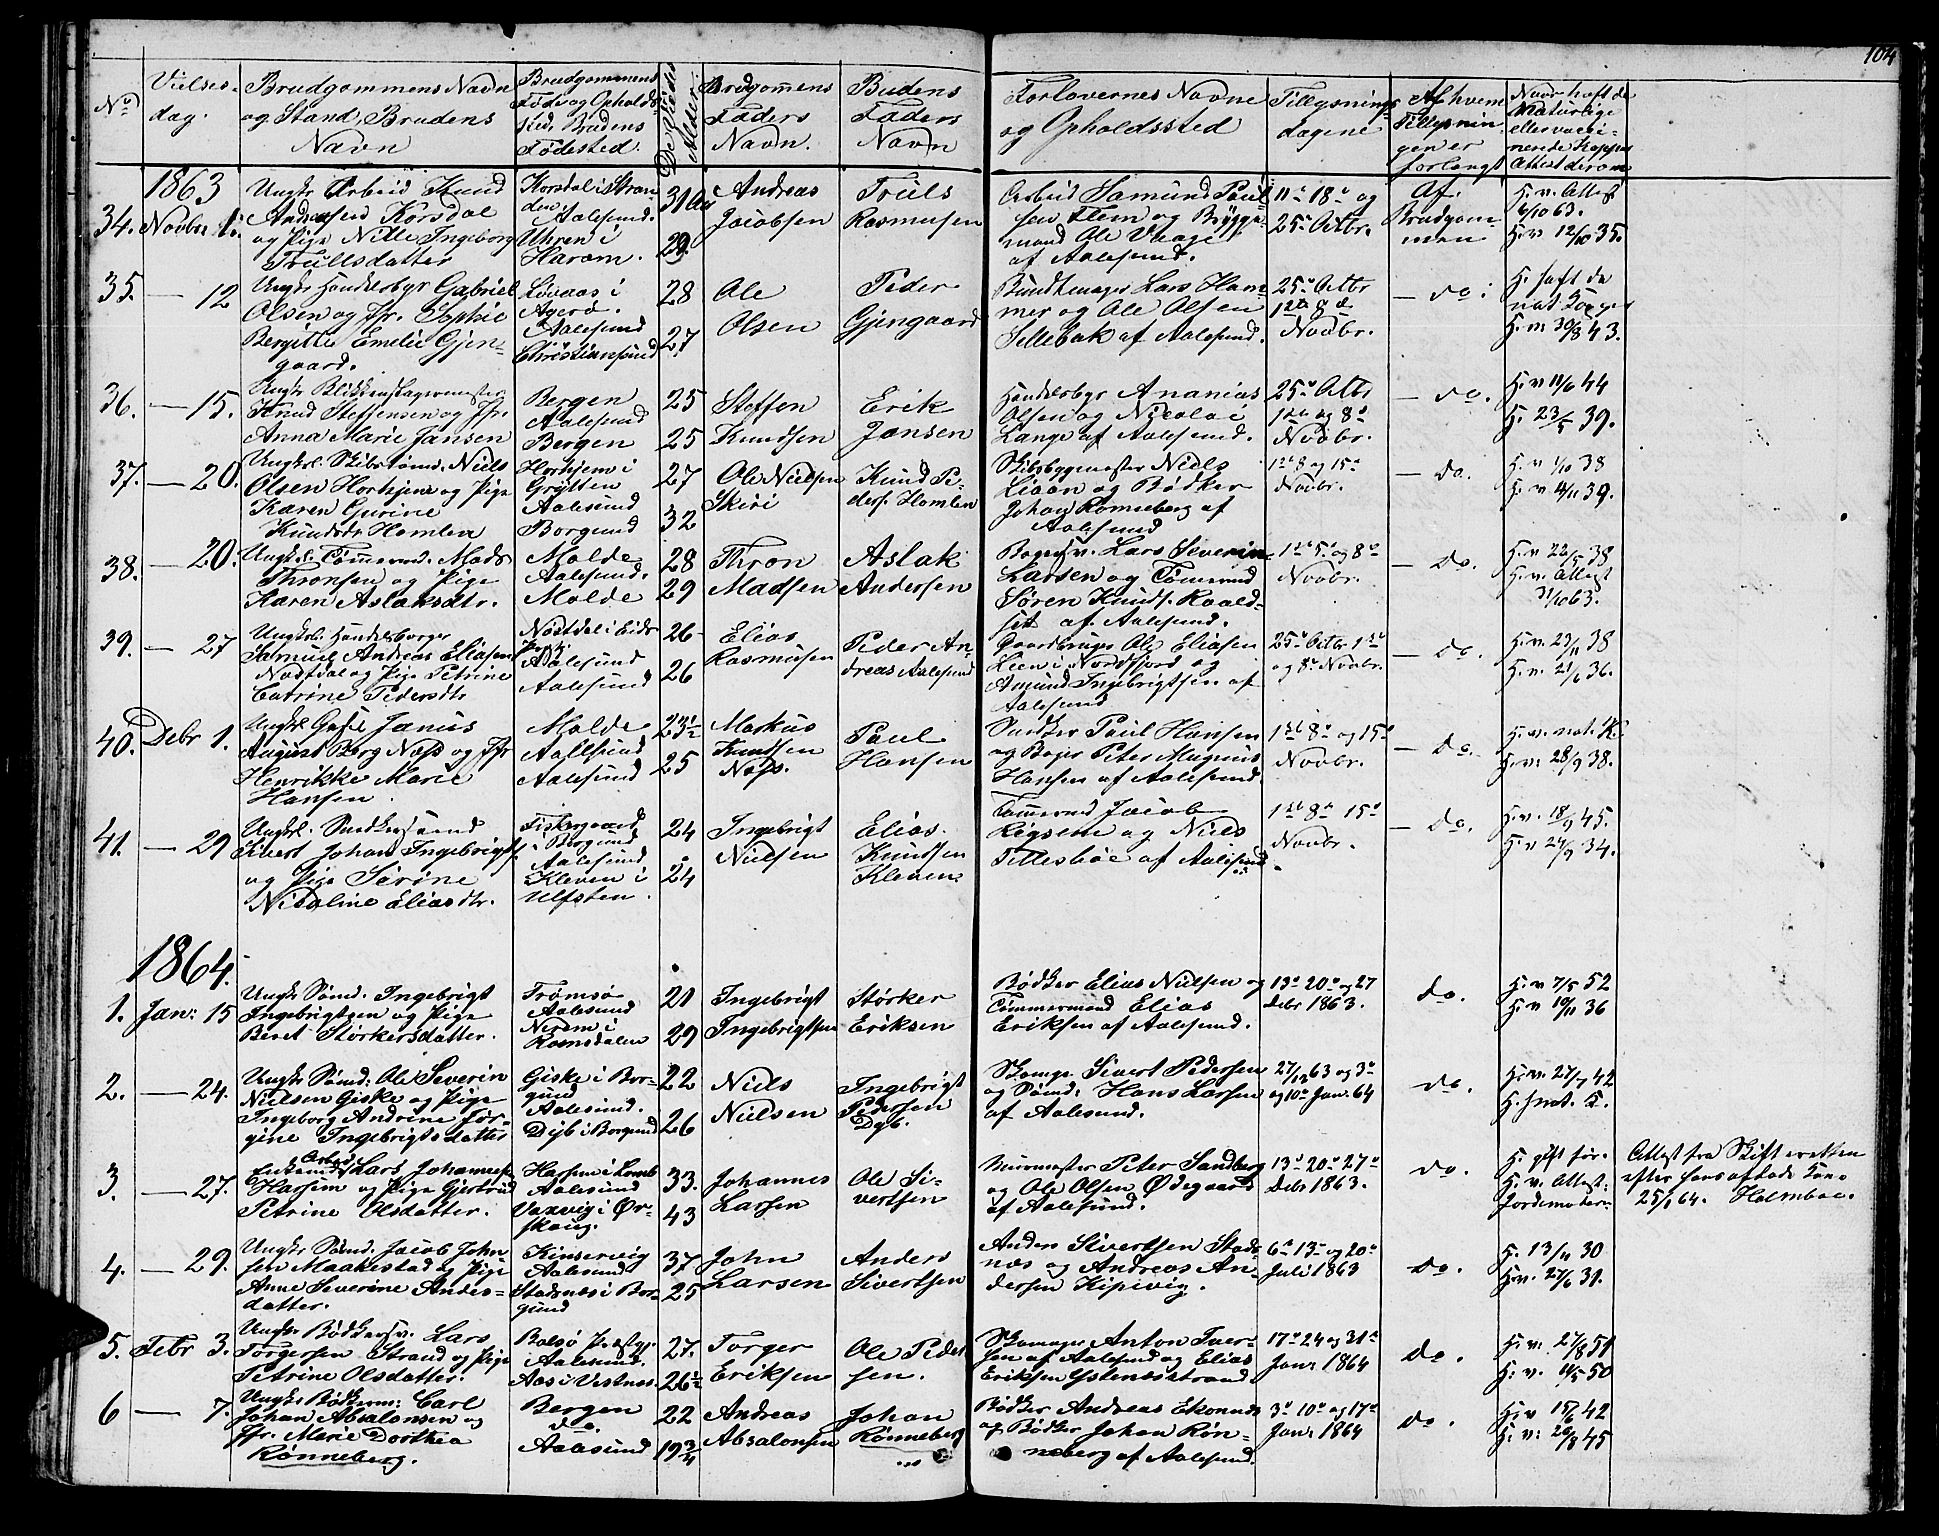 104
No
Vielses-
dag.
Brudgommens Navn
og Stand, Brudens
Navn
Brudgommens
Føde og Opholds
sted, Brudens
Fødested.
Deres
Alder.
Brudgommens
Faders
Navn.
Brudens
Faders
Navn
Forlovernes Navne
og Opholdssted
Tillysnings-
dagene
Af hvem
Tillysnin
gen er
forlangt
Naar haft de
Naturlige
eller vacci-
nerede Kopper
Attest derom
1863
34. Novbr 1.
Ungk. Arbeid Knud
Andreasen Korsdal
og Pige Nille Ingeborg
Trulsdatter
Korsdal i Stran
den
Aalesund.
Uhren i
Haram.
31 Aar
29.
Andreas
Jacobsen
Truls
Rasmusen
Arbeid Samund Paul
sen Flem og Brygge-
mand Ole Vaage
af Aalesund.
11te 18de og
25de Octbr.
Af
Brudgom-
men
H. v. Attest
6/10 63.
H. v. 12/10 35.
35. — 12
Ungk Handelsbgr Gabriel
Olsen og Jfr. Sophie
Bergitte Emelie Gjen-
gaard.
Løvaas i
Agerø.
Aalesund
Christiansund
28
27
Ole
Olsen
Peder
Gjengaard
Bundtmager Lars Ham-
mer og Ole Olsen
Sillebak af Aalesund.
25de Octbr
1ste 8de
Novbr.
— do:
H. haft de
nat Kopper
H. v. 30/8 43.
36. — 15.
Ungk Blikkenslagermester
Knud Steffensen og Jfr.
Anna Marie Jansen
Bergen
Aalesund
Bergen
25
25
Steffen
Knudsen
Erik
Jansen
Handelsbgr Ananias
Olsen og Nicolai
Lange af Aalesund.
25de Octbr
1ste og 8de
Novbr.
— do.
H. v 11/6 44
H. 23/5 39.
37. — 20.
Ungkl. Skibstømd. Niels
Olsen Horhjem og Pige
Karen Gurine
Knudsdr Hamlen
Horhjem i
Grytten
Aalesund
Borgund
27
32
Ole Nielsen
Skiri
Knud Pe-
ders. Hamlen
Skibsbygmester Niels
Liaan og Bødker
Johan Rønneberg af
Aalesund
1ste 8 og 15de
Novbr.
— do.
H. v 1/10 38
H. v 4/11 39.
38. — 20.
Ungkl. Tømmermd. Mads
Thronsen og Pige
Karen Aslaksdtr.
Molde
Aalesund.
Molde
28
29
Thron
Madsen
Aslak
Andersen
Bagersv. Lars Severin
Larsen og Tømermd
Søren Knuds. Roald-
set af Aalesund.
1ste 5te og 8de
Novbr.
— do.
H. v 22/5 38
H. v. Attest
31/10 63.
39. — 27
Ungkl. Handelsborger
Samuel Andreas Eliasen
Nøstdal og Pige Petrine
Catrine Pedersdtr
Nøstdal i Eids
Aalesund
Aalesund
26
26
Elias
Rasmusen
Peder An-
dreas Aalesund
Gaardbruger Ole Eliasen
Leen i Nordfjord og
Amund Ingebrigtsen af
Aalesund
25de Octbr 1ste
og 8de Novbr.
— do.
H. v. 23/11 38
H. v. 21/6 36.
40. Debr 1.
Janus
August Berg Næss og Jfr
Henrikke Marie
Hansen.
Molde
Aalesund
Aalesund
23½
25
Markus
Knudsen
Næss.
Paul
Hansen
Snedker Paul Hansen
og Bager Peter Magnus
Hansen af Aalesund.
1ste 8de og 15de
Novbr.
— do.
H. v. nat. K.
H. v: 28/9 38.
41. — 29
Ungkl. Snedkersvend
Sivert Johan Ingebrigts.
og Pige Serine
Nicoline Eliasdtr.
Fiskergaard
i Borgund
Aalesund.
Kleven i
Ulfsten.
24
24
Ingebrigt
Nielsen
Elias
Knudsen
Kleven.
Tømermd Jacob
Rigsem og Niels
Tillesbøe af Aalesund.
1ste 8de 15de
Novbr.
— do.
H. v. 18/9 45.
H. v 24/9 34.
1864.
1. Jan: 15
Ungk Sømd. Ingebrigt
Ingebrigtsen og Pige
Beret Størkersdatter.
Tromsø
Aalesund
i
Romsdalen
21
29
Ingebrigt
Ingebrigtsen
Størker
Eriksen
Bødker Elias Nielsen og
Tømmermand Elias
Eriksen af Aalesund.
13de 20de og 27
Debr 1863.
do.
H. v 7/5 52
H. v 10/11 36
2. — 24.
Ungk Sømd: Ole Severin
Nielsen Giske og Pige
Ingeborg Andrine Jør-
gine Ingebrigtsdatter
Giske i Bor-
gund
Aalesund.
Dyb i Borgund
22
26
Niels
Nielsen
Ingebrigt
Pedersen
Dyb.
Skomgr. Sivert Pedersen
og Sømd: Hans Larsen
af Aalesund.
27/12 63 og 3de
og 10de Jan: 64
do.
H. v. 27/7 42
H. h. nat. K.
3. — 27.
Enkemd Arbeid Lars Johannesen
Harsem og Pige Gjertrud
Petrine Olsdatter.
Harsem i Lomb
Aalesund
Vaxvig i Ør-
skoug.
33.
43
Johannes
Larsen
Ole Si-
vertsen
Muurmester Peter Sandberg
og Ole Olsen Ødegaard
af Aalesund.
13de 20de 27de
Debr 1863.
do.
H. gift før.
H. v. Attest:
Jordemoder.
Attest fra Skifteretten
efter hans afdøde Kone
25/1 64. Holmboe.
4. — 29.
Ungk Sømd. Jacob John
sen Maakestad og Pige
Anne Severine Anders-
datter.
Kinservig
Aalesund
Stadsnæs i Bor-
gund
37
25
John
Larsen
Anders
Sivertsen
Anders Sivertsen Stads-
næs og Andreas An-
dersen Kipevig.
6te 13de og 20de
Juli 1863
do.
H. 13/11 30
H. v. 27/6 31.
5. Febr 3.
Ungk Bødkersv. Lars
Torgersen Strand og Pige
Petrine Olsdatter.
Bolsø Præstgj.
Aalesund.
Aas i Vestnes.
27.
26½
Torger
Eriksen
Ole Peder
sen.
Skomager Anton Iver-
sen af Aalesund og Elias
Eriksen Gstenæsstrand.
17de 24 og 31te
Jan: 1864
do.
H. v. 27/8 51
H. v. 11/5 50
6 — 7.
Ungk Bødkersv: Carl
Johan Absalonsen og
Jfr. Marie Dorthea
Rønneberg.
Bergen
do.
Aalesund
22
19¾
Andreas
Absalonsen
Johan
Rønneberg
Bødker Andreas Ekornnæs
og Bødker Johan Røn-
neberg af Aalesund.
3de 10de og 17de
Jan: 1864
do.
H. v 15/6 42
H. v: 26/8 45